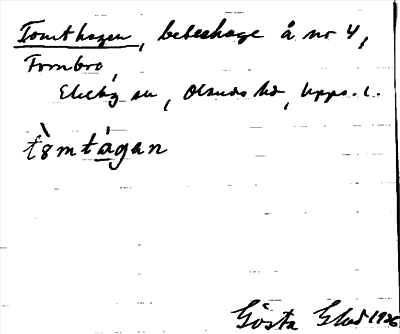 Tomthagen, beteshage å nr 4,
Fornbro,
Ekeby sn, Olands hd, Upps. l.
tòmtágan
Gösta Glad 1926